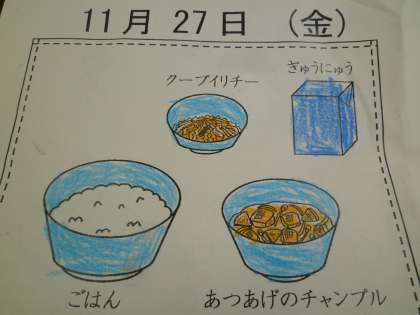 11月 27日 （金）
クーブイリチー
ぎゅうにゅう
ごはん
あつあげのチャンプル